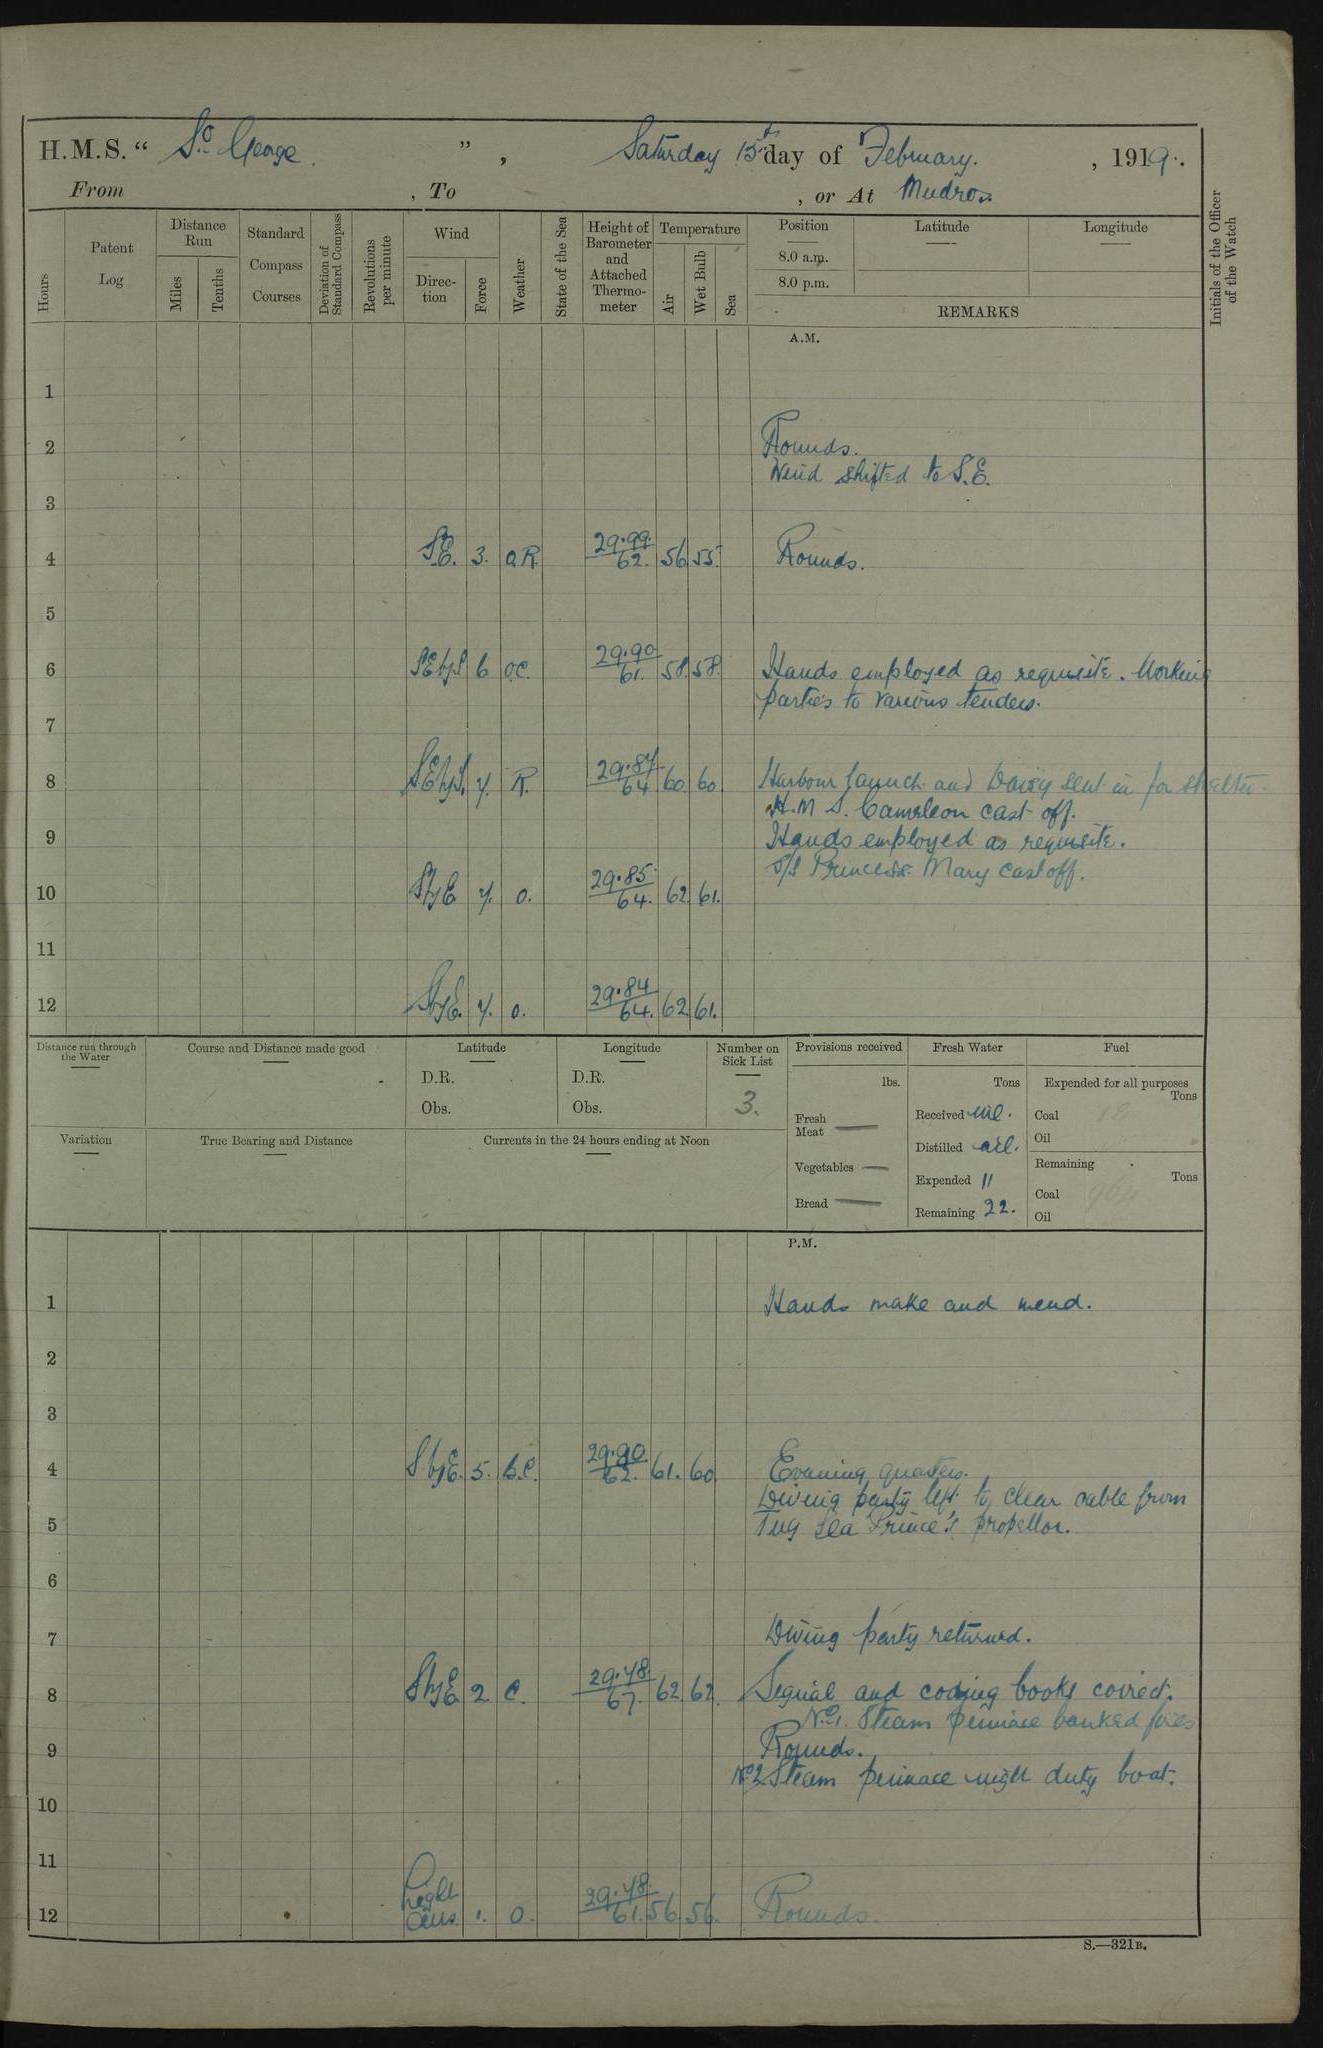 H.M.S. “ St. George. ” , Saturday 15th day of February. , 1919.
From , To , or At Mudros.
Hours
Patent Log
Distance Run
Miles
Tenths
Standard Compass Courses
Deviation of Standard Compass
Revolutions per minute
Wind
Direction
Force
Weather
State of the Sea
Height of Barometer and Attached Thermometer
Temperature
Air
Wet Bulb
Sea
Position
8.0 a.m.
8.0 p.m.
Latitude
Longitude
REMARKS
Initials of the Officer of the Watch
A.M.
1
2 Rounds.
Wind shifted to S.E.
3
4 S.E. 3. O.R. 29.99 62. 56 55. Rounds.
5
6 SEbyS 6 O.C. 29.90 61. 58. 58. Hands employed as requisite. Working
parties to various tenders.
7
8 SEbyS. 7. R. 29.87 64 60. 60. Harbour launch and Daisy sent in for shelter.
H.M.S. Cameleon cast off.
9 Hands employed as requisite.
S/S Princess Mary cast off.
10 SbyE 7. O. 29.85 64. 62. 61.
11
12 SbyE. 7. O. 29.84 64. 62. 61.
Distance run through the Water
Course and Distance made good
Latitude
D.R.
Obs.
Longitude
D.R.
Obs.
Number on Sick List
3.
Provisions received
lbs.
Fresh Meat —
Vegetables —
Bread —
Fresh Water
Tons
Received nil.
Distilled nil.
Expended 11
Remaining 22.
Fuel
Expended for all purposes
Tons
Coal 18
Oil
Remaining
Tons
Coal
Oil
Variation
True Bearing and Distance
Currents in the 24 hours ending at Noon
P.M.
1 Hands make and mend.
2
3
4 SbyE. 5. B.C. 29.90 62. 61. 60. Evening quarters.
Diving party left to clear cable from
5 Tug Sea Prince's propellor.
6
7 Diving party returned.
8 SbyE 2 C. 29.78. 67. 62. 62. Signal and coding books correct.
No 1. Steam pinnace banked fires
9 Rounds.
No 2 Steam pinnace night duty boat.
10
11
12 Light airs. 1. O. 29.78. 61. 56. 56. Rounds.
S.—321B.